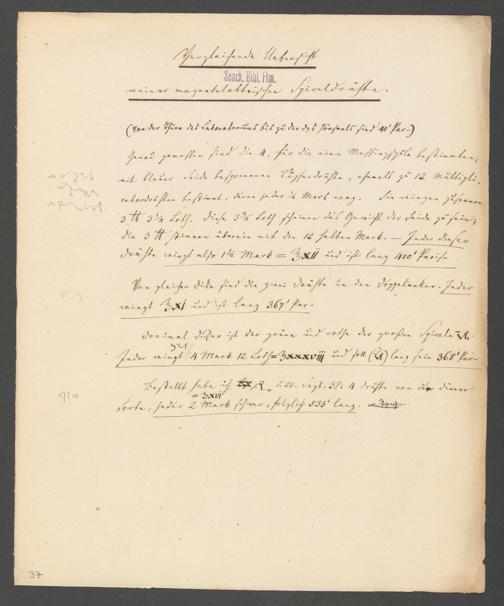 Vergleichende Uebersicht
Senck. Bibl. Ffm.
meiner magnetelektrischen Spiraldrähte.
(von der Thüre des Laboratoriums bis zu der des Hörsaals sind 40' Par.)
Genau gemessen sind die 4, für die eine Messingspule bestimmten,
mit blauer Seide besponnene Kupferdrähte, ehemals zu 12 Multipli-
catordrähten bestimmt, deren jeder ½ Mark wog. Sie wiegen zusammen
3 ℔ 3¾ Loth. Diese 3¾ Loth scheinen das Gewicht der Seide zu sein;
die 3 ℔ stimmen überein mit den 12 halben Mark. — Jeder dieser
Drähte wiegt also 1½ Mark = ℥xii und ist lang 400' Paris.
Von gleicher Dicke sind die zwei Drähte in den Doppelanker. Jeder
wiegt ℥xi und ist lang 367' Par.
Dreimal dicker ist der grüne und rothe der großen Spirale
Jeder wiegt 4 Mark 12 Loth = ℥xxxviii und soll lang sein 368' Par.
Bestellt habe ich d. 20. Sept. 38. 4 Drähte von der dünnen
= ℥xvi
Sorte, jeder 2 Mark schwer, folglich 533' lang.
37